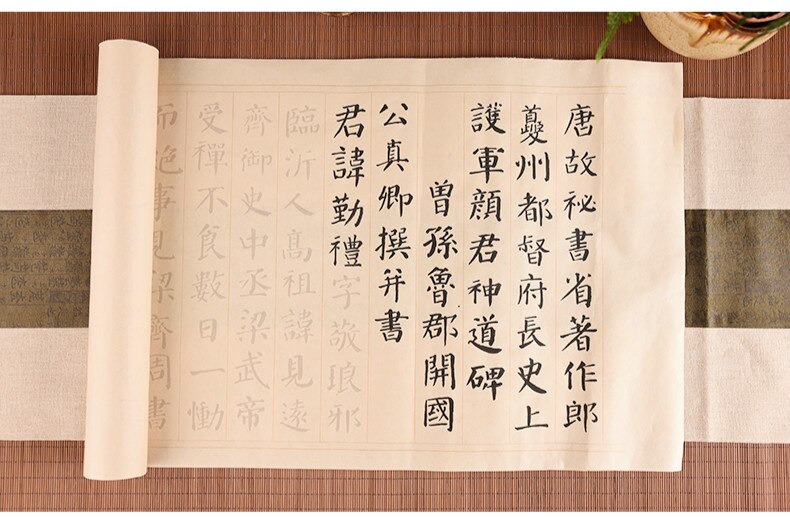 唐故祕書省著作郎
夔州都督府長史上
護軍顏君神道碑
曾孫魯郡開國
公真卿撰并書
君諱勤禮字敬琅邪
臨沂人髙祖諱見遠
齊御史中丞梁武帝
受禪不食數日一慟
而絕事見梁齊周書